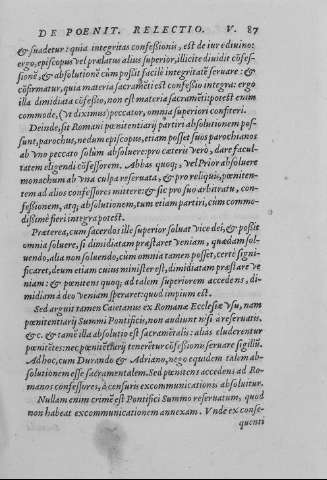 DE POENIT. RELECTIO. V. 87
& suadetur: quia integritas confessionis, est de iure diuino:
ergo, episcopus vel prælatus alius superior, illicite diuidit cõfes-
sionẽ, & absolutionẽ cùm possit facilè integritatẽ seruare: &
cõfirmatur, quia materia sacramẽti est confessio integra: ergo
illa dimidiata cõfessio, non est materia sacramẽti: potest enim
commodè, (vt diximus) peccator, omnia superiori confiteri.
Deinde, si Romani pœnitentiarij partiri absolutionem pos-
sunt, parochus, nedum episcopus, etiam posset suos parochianos
ab vno peccato solùm absoluere: pro cæteris verò, dare facul-
tatem eligendi cõfessorem. Abbas quoq; vel Prior absoluere
monachum ab vna culpa reseruata, & pro reliquis, pœniten-
tem ad alios confessores mittere: & sic pro suo arbitratu, con-
fessionem, atq; absolutionem, tum etiam partiri, cùm commo-
dissimè fieri integra potest.
Præterea, cum sacerdos ille superior soluat vice dei, & possit
omnia soluere, si dimidiatam præstaret veniam, quædam sol-
uendo, alia non soluendo, cùm omnia tamen posset, certè signi-
ficaret, deum etiam cuius minister est, dimidiatam præstare ve
niam: & pœnitens quoq; ad talem superiorem accedens, di-
midiam à deo veniam speraret: quod impium est.
Sed arguit tamen Caietanus ex Romanæ Ecclesiæ vsu, nam
pœnitentiarij Summi Pontificis, non audiunt nisi à reseruatis,
&c. & tamẽ illa absolutio est sacramẽtalis: alias eluderentur
pœnitẽtes: nec pœnitẽtiarij tenerẽtur cõfessionis seruare sigillũ.
Ad hoc, cum Durando & Adriano, nego equidem talem ab-
solutionem esse sacramentalem. Sed pœnitens accedens ad Ro-
manos confessores, à censuris excommunicationis absoluitur.
Nullum enim crimẽ est Pontifici Summo reseruatum, quod
non habeat excommunicationem annexam. Vnde ex conse-
quenti